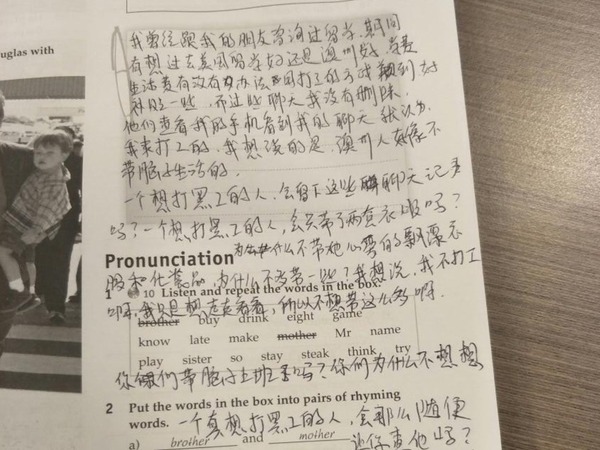 uglas with
我曾经跟我的朋友咨询过留学,期间
有想过去美国留学好还是澳州好,考虑
生活费有没有办法因打工的方式赖到对
对的一些,而这些聊天我没有删除,
他们查看我的手机看到我的聊天就认为
我来打工的,我想说的是,澳州人好像不
带脑子生活的。
一个想打黑工的人,会留下这些聊天记录
吗?一个想打黑工的人,会只带了两套衣服吗?
为什么不带她心爱的飘漂衣
Pronunciation
服和化妆品,为什么不多带一些?我想说,我不打工
1 10 Listen and repeat the words in the box.
啊,我只是想走走看看,所以不想带这么多啊.
brother buy drink eight game
know late make mother Mr name
play sister so stay steak think try
你们带脑子上班吗?你们为什么不想想
2 Put the words in the box into pairs of rhyming
words. 一个真想打黑工的人,会那么随便
a) brother and mother 让你查他吗?